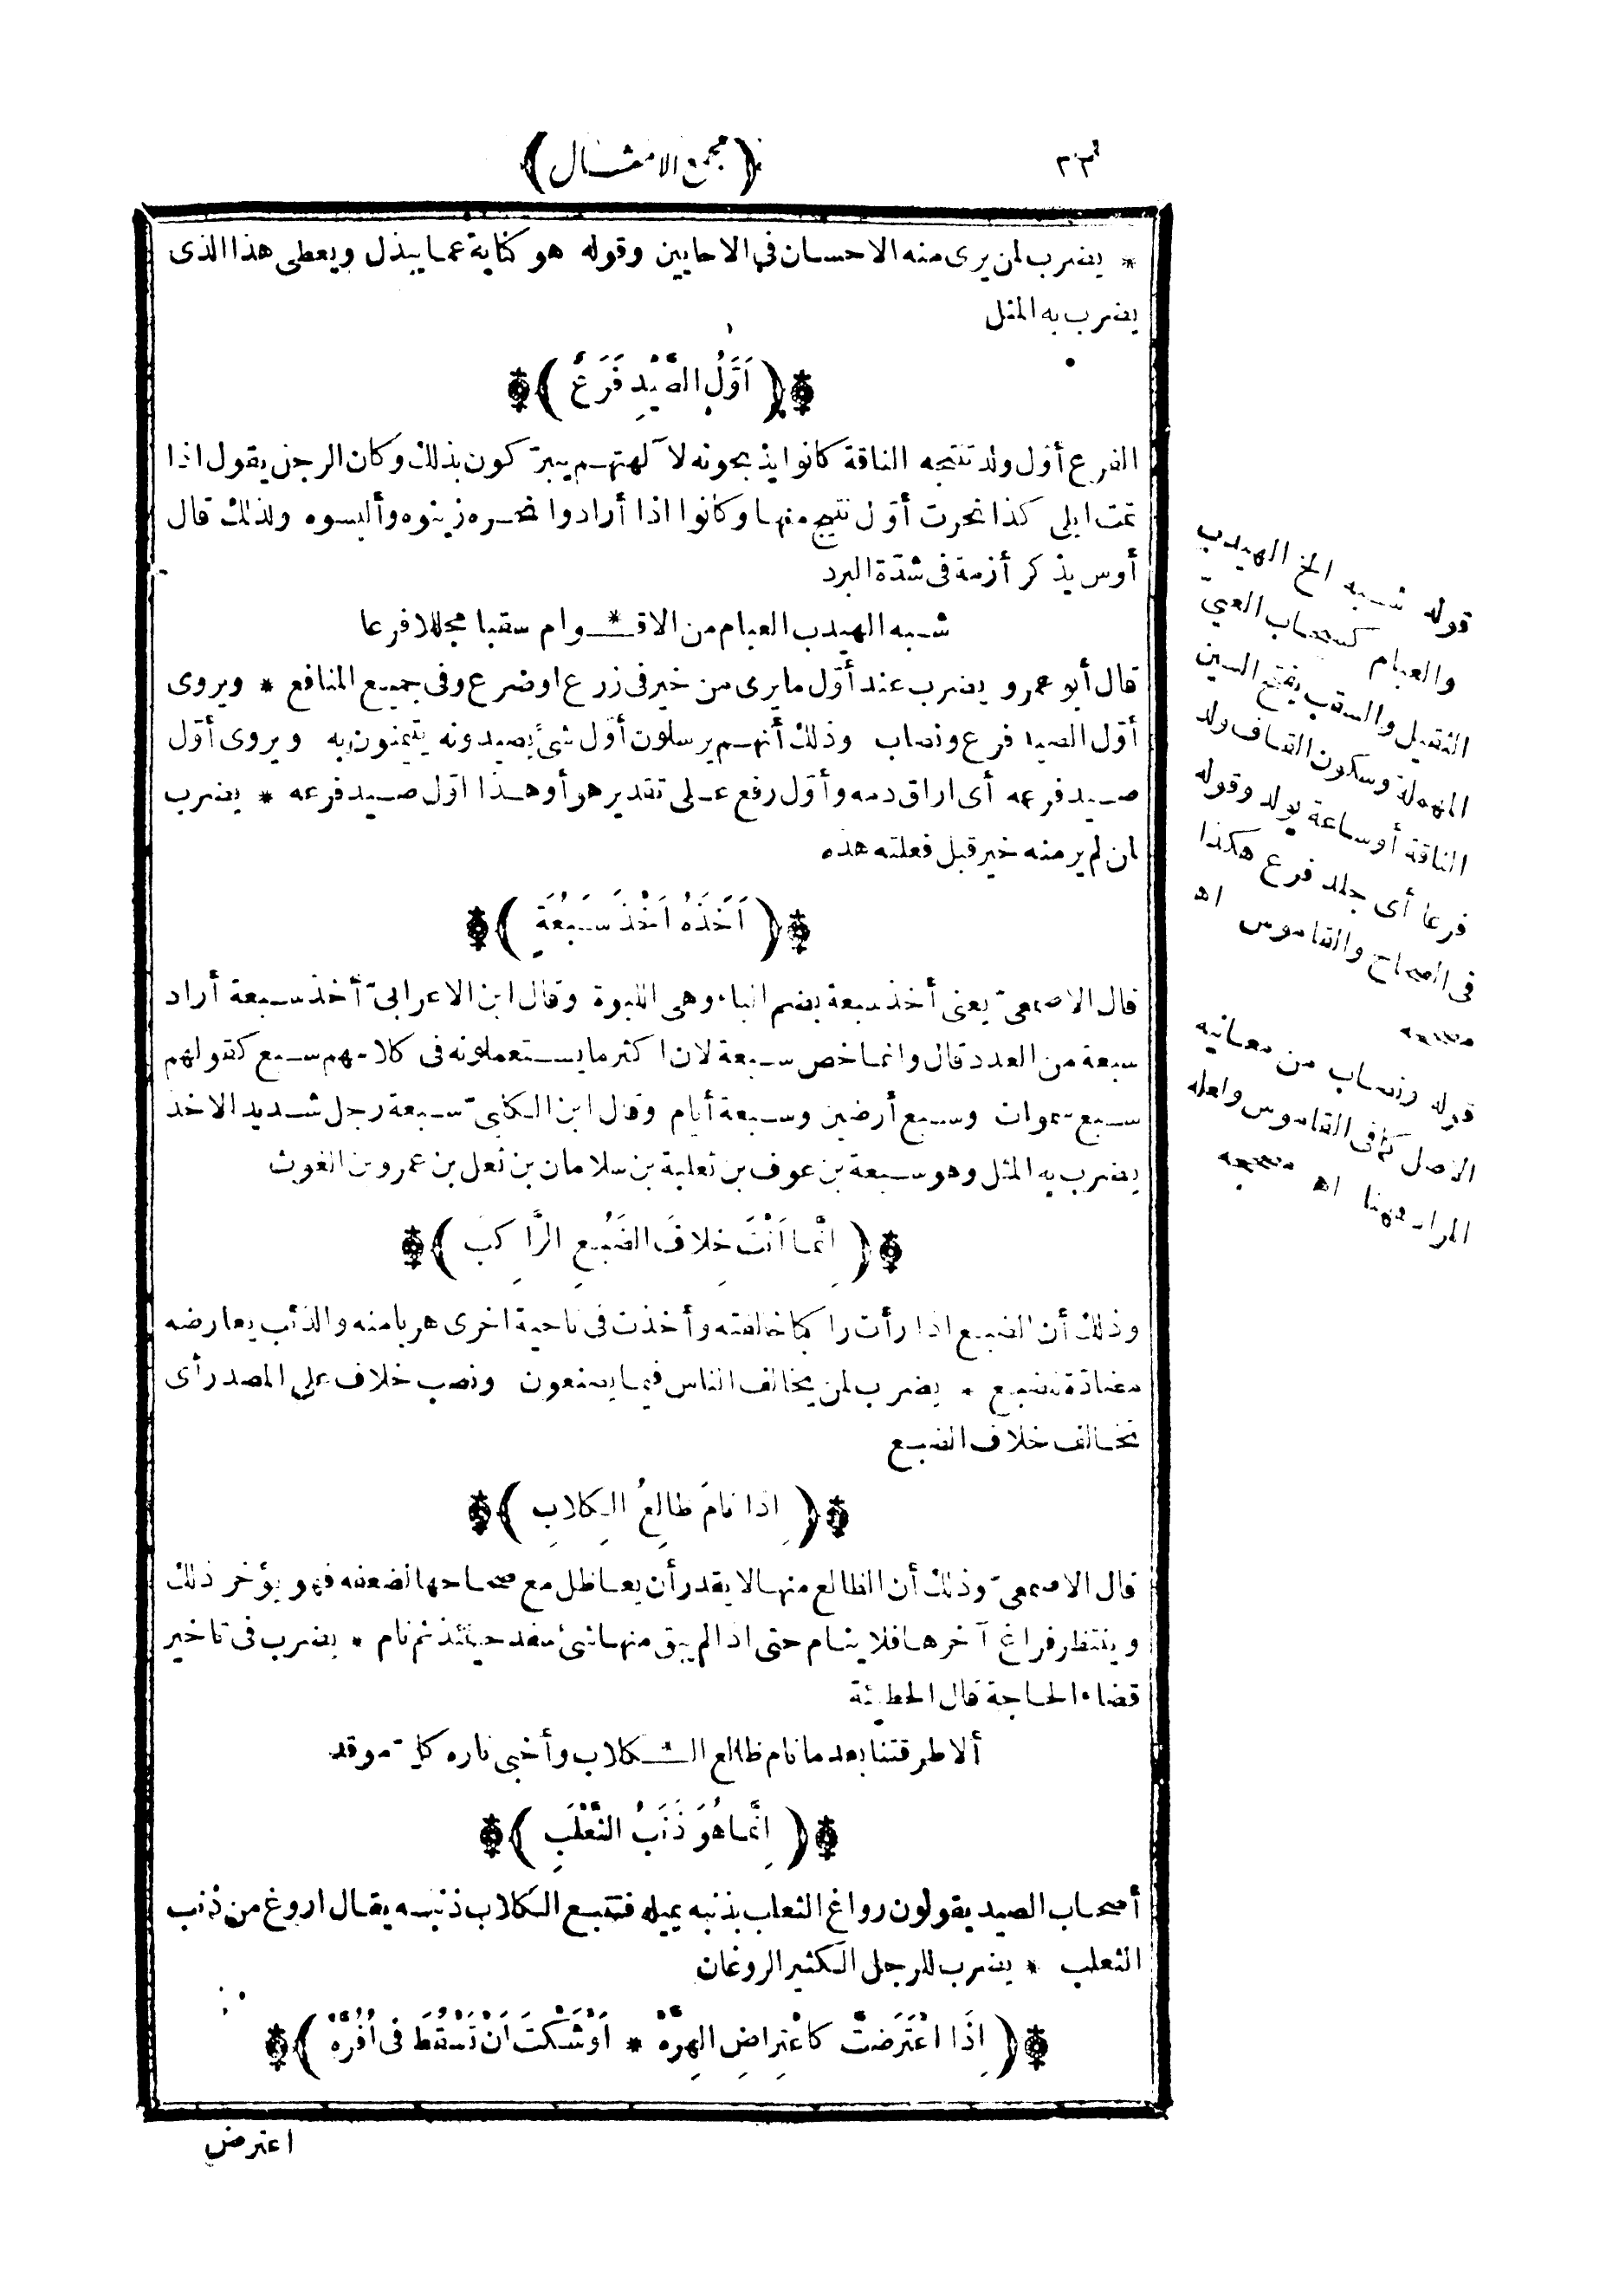 ٢٣
(مجمع الامثال)
* يضرب لمن يرى منه الاحسان فى الاحايين وقوله هو كناية عما يبذل ويعطى هذا الذى
يضرب به المثل
(أَوَّلُ الصَّيْدِ فَرَعٌ)
الفرع أوّل ولد تنتجه الناقة كانوا يذبحونه لآلهتهم يتبرّكون بذلك وكان الرجل يقول اذا
تمت ابلى كذا نحرت أوّل نتيج منها وكانوا اذا أرادوا نحره زينوه وألبسوه ولذلك قال
أوس يذكر أزمة فى شدّة البرد
شبه الهيدب العبام من الاقـ * ـوام سقبا مجللا فرعا
قال أبو عمرو يضرب عند أوّل ما يرى من خير فى زرع اوضرع وفى جميع المنافع * ويروى
أوّل الصيد فرع ونصاب وذلك أنهم يرسلون أوّل شئ يصيدونه يتيمنون به ويروى أوّل
صيد فرعه أى اراق دمه وأوّل رفع على تقدير هو أوهذا اوّل صيد فرعه * يضرب
لمن لم ير منه خير قبل فعلته هذه
(أَخَذَهُ أَخْذَ سَبُعَةٍ)
قال الاصمعىّ يعنى أخذ سبعة بضم الباء وهى اللبوة وقال ابن الاعرابىّ أخذ سبعة أراد
سبعة من العدد قال وانما خص سبعة لان اكثر ما يستعملونه فى كلامهم سبع كقولهم
سبع سموات وسبع أرضين وسبعة أيام وقال ابن الكلبىّ سبعة رجل شديد الاخذ
يضرب به المثل وهو سبعة بن عوف بن ثعلبة بن سلامان بن ثعل بن عمرو بن الغوث
(إِنَّمَا أَنْتَ خِلَافَ الضَّبُعِ الرَّاكِبَ)
وذلك أن الضبع اذا رأت راكبا خالفته وأخذت فى ناحية اخرى هربا منه والذئب يعارضه
مضادّة للضبع * يضرب لمن يخالف الناس فيما يصنعون ونصب خلاف على المصدر أى
تخالف خلاف الضبع
(إِذَا نَامَ ظَالِعُ الْكِلَابِ)
قال الاصمعىّ وذلك أن الظالع منها لا يقدر أن يعاظل مع صحاحها لضعفه فهو يؤخر ذلك
وينتظر فراغ آخرها فلا ينام حتى اذا لم يبق منها شئ سفد حينئذ ثم نام * يضرب فى تاخير
قضاء الحاجة قال الحطيئة
ألا طرقتنا بعد ما نام ظالع الـ * ـكلاب وأخبى ناره كلّ موقد
(إِنَّمَا هُوَ ذَنَبُ الثَّعْلَبِ)
أصحاب الصيد يقولون رواغ الثعلب بذنبه يميله فتتبع الكلاب ذنبه يقال اروغ من ذنب
الثعلب * يضرب للرجل الكثير الروغان
(إِذَا اعْتَرَضْتَ كَاعْتِرَاضِ الْهِرَّهْ * أَوْشَكْتَ أَنْ تَسْقُطَ فِى أُفُرَّهْ)
اعترض
قوله شبه الخ الهيدب
والعبام كسحاب العيىّ
الثقيل والسقب بفتح السين
المهملة وسكون القاف ولد
الناقة أوساعة يولد وقوله
فرعا أى جلد فرع هكذا
فى الصحاح والقاموس اه
مصححه
قوله ونصاب من معانيه
الاصل كما فى القاموس ولعله
المراد ههنا اه مصححه